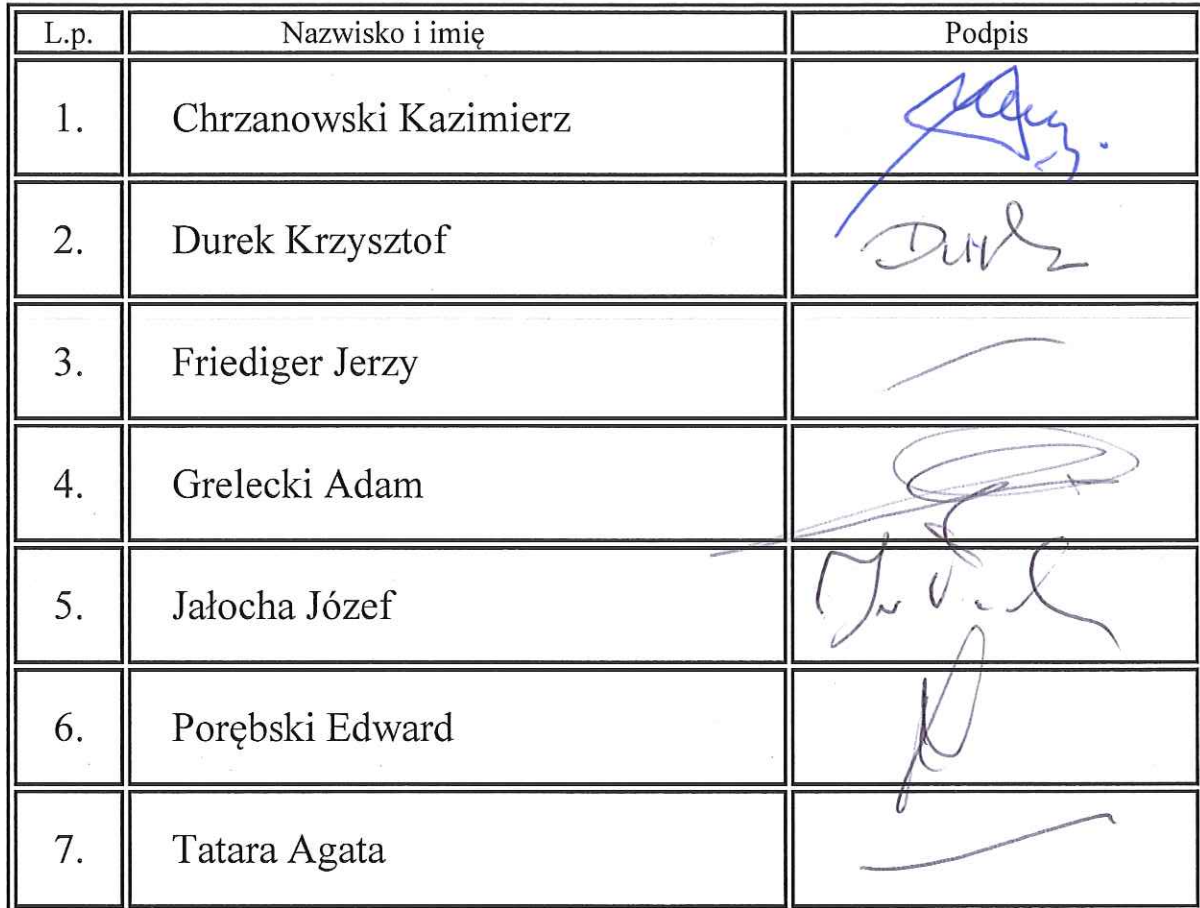 L.p. Nazwisko i imię Podpis
1. Chrzanowski Kazimierz
2. Durek Krzysztof
3. Friediger Jerzy
4. Grelecki Adam
5. Jałocha Józef
6. Porębski Edward
7. Tatara Agata